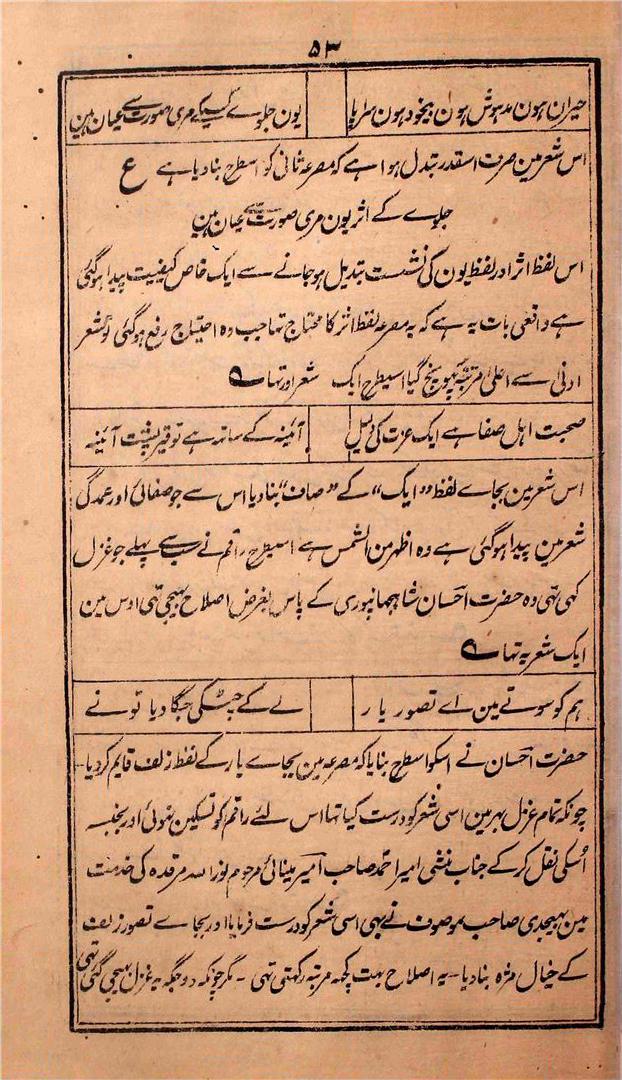 ۵۳
حیران ہون مدہوش ہون بیخود ہون سراپا یون جلوے کسیکے مری صورت سے عیان ہین
اس شعر مین صرف اسقدر تبدل ہوا ہے کہ مصرعہ ثانی کو اسطرح بنا دیا ہے ع
جلوے کے اثر یون مری صورت سے عیان ہین
اس لفظ اثر اور لفظ یون کی نشست تبدیل ہوجانے سے ایک خاص کیفیت پیدا ہوگئی
ہے واقعی بات یہ ہے کہ یہ مصرعہ لفظ اثر کا محتاج تہا جب وہ احتیاج رفع ہوگئی تو شعر
ادنیٰ سے اعلیٰ مرتبہ کو پہونچ گیا اسیطرح ایک شعر اور تہا ؎
صحبت اہل صفا ہے ایک عزت کی دلیل آئینہ کے ساتہ ہے توقیر پشت آئینہ
اس شعر مین بجاے لفظ "ایک" کے "صاف" بنا دیا اس سے جو صفائی اور عمدگی
شعر مین پیدا ہوگئی ہے وہ اظہر من الشمس ہے اسیطرح راقم نے سب سے پہلے جو غزل
کہی تہی وہ حضرت احسان شاہجہانپوری کے پاس بغرض اصلاح بہیجی تہی اوس مین
ایک شعر یہ تہا ؎
ہم کو سوتے مین اے تصور یار لے کے چٹکی جگا دیا تو نے
حضرت احسان نے اسکو اسطرح بنایا کہ مصرعہ مین بجاے یار کے لفظ زلف قایم کردیا۔
چونکہ تمام غزل بہر مین اسی شعر کو درست کیا تہا اس لئے راقم کو تسکین نہوئی اور بجنسہ
اُسکی نقل کرکے جناب منشی امیر احمد صاحب امیر مینائی مرحوم نور اللہ مرقدہ کی خدمت
مین بہیجدی صاحب موصوف نے بہی اسی شعر کو درست فرمایا اور بجاے تصور زلف
کے خیال مزہ بنا دیا۔ یہ اصلاح بہت کچہ مرتبہ رکہتی تہی۔ مگر چونکہ دو جگہ یہ غزل بہیجی گئی تہی